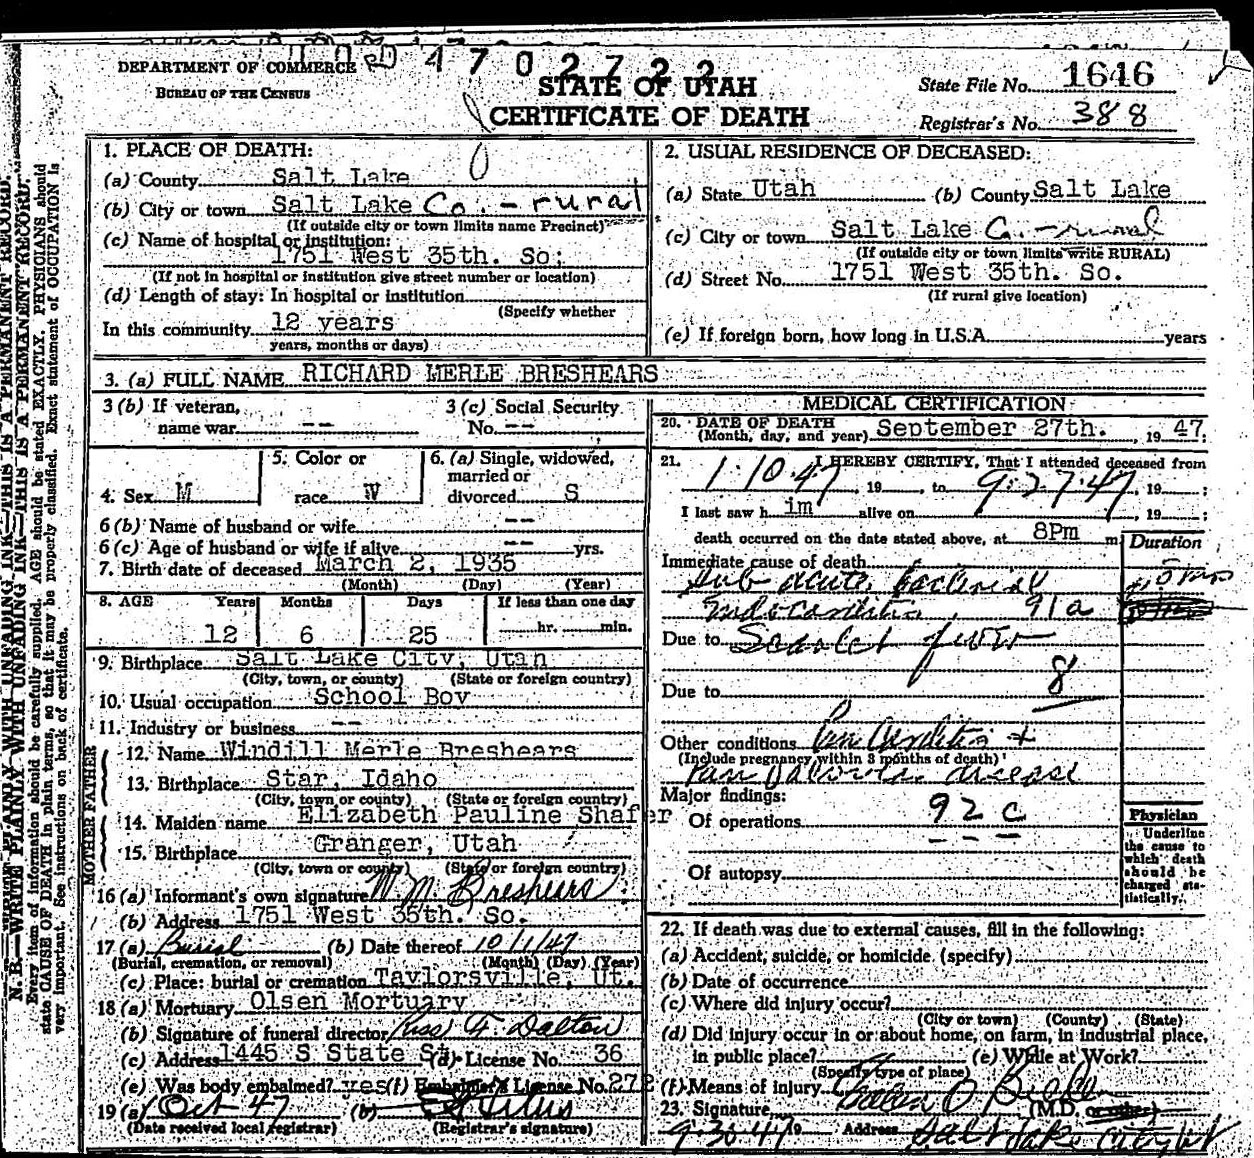 DEPARTMENT OF COMMERCE
BUREAU OF THE CENSUS
4702722
STATE OF UTAH
CERTIFICATE OF DEATH
State File No. 1646
Registrar's No. 388
1. PLACE OF DEATH:
(a) County Salt Lake
(b) City or town Salt Lake Co. - rural
(If outside city or town limits name Precinct)
(c) Name of hospital or institution:
1751 West 35th. So.
(If not in hospital or institution give street number or location)
(d) Length of stay: In hospital or institution
(Specify whether
In this community 12 years
years, months or days)
2. USUAL RESIDENCE OF DECEASED:
(a) State Utah (b) County Salt Lake
(c) City or town Salt Lake Co. - rural
(If outside city or town limits write RURAL)
(d) Street No. 1751 West 35th. So.
(If rural give location)
(e) If foreign born, how long in U.S.A. years
3. (a) FULL NAME RICHARD MERLE BRESHEARS
3 (b) If veteran, name war --
3 (c) Social Security No. --
4. Sex M
5. Color or race W
6. (a) Single, widowed, married or divorced S
6 (b) Name of husband or wife --
6 (c) Age of husband or wife if alive -- yrs.
7. Birth date of deceased March 2, 1935
(Month) (Day) (Year)
8. AGE Years Months Days If less than one day
12 6 25 hr. min.
9. Birthplace Salt Lake City, Utah
(City, town, or county) (State or foreign country)
10. Usual occupation School Boy
11. Industry or business --
FATHER
12. Name Windill Merle Breshears
13. Birthplace Star, Idaho
(City, town or county) (State or foreign country)
MOTHER
14. Maiden name Elizabeth Pauline Shafer
15. Birthplace Granger, Utah
(City, town or county) (State or foreign country)
16 (a) Informant's own signature W. M. Breshears
(b) Address 1751 West 35th. So.
17 (a) Burial (b) Date thereof 10/1/47
(Burial, cremation, or removal) (Month) (Day) (Year)
(c) Place: burial or cremation Taylorsville, Ut.
18 (a) Mortuary Olsen Mortuary
(b) Signature of funeral director Russ F. Dalton
(c) Address 1445 S State St. (d) License No. 36
(e) Was body embalmed? yes (f) Embalmer's License No. 272
19 (a) 1 Oct 47 (b)
(Date received local registrar) (Registrar's signature)
MEDICAL CERTIFICATION
20. DATE OF DEATH
(Month, day, and year) September 27th. , 19 47.
21. I HEREBY CERTIFY, That I attended deceased from
1-10-47, 19 , to 9-27-47, 19 ;
I last saw h im alive on , 19 ;
death occurred on the date stated above, at 8Pm m.
Duration
Immediate cause of death
Sub acute bacterial
Endocarditis 91a
Due to Scarlet fever
8
Due to
Other conditions
(Include pregnancy within 3 months of death)
disease
Major findings:
Of operations 92 c
Of autopsy
Physician
Underline the cause to which death should be charged statistically.
22. If death was due to external causes, fill in the following:
(a) Accident, suicide, or homicide (specify)
(b) Date of occurrence
(c) Where did injury occur?
(City or town) (County) (State)
(d) Did injury occur in or about home, on farm, in industrial place,
in public place? (e) While at Work?
(Specify type of place)
(f) Means of injury
23. Signature (M.D. or other)
9-30-47 19 Address Salt Lake City Ut
N. B.—WRITE PLAINLY WITH UNFADING INK—THIS IS A PERMANENT RECORD.
Every item of information should be carefully supplied. AGE should be stated EXACTLY. PHYSICIANS should
state CAUSE OF DEATH in plain terms, so that it may be properly classified. Exact statement of OCCUPATION is
very important. See instructions on back of certificate.